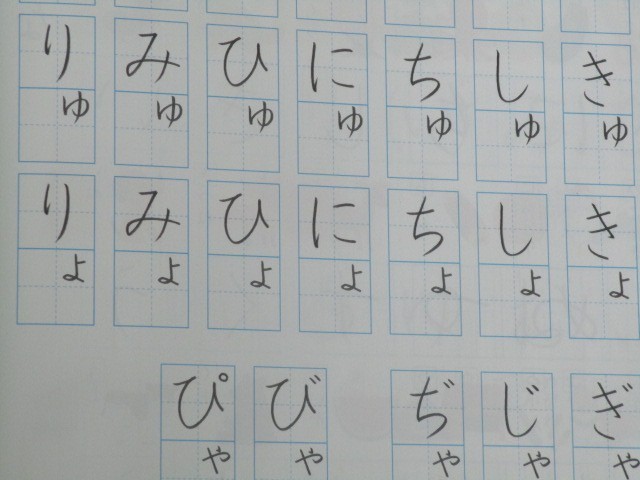 きゅ
しゅ
ちゅ
にゅ
ひゅ
みゅ
りゅ
きょ
しょ
ちょ
にょ
ひょ
みょ
りょ
ぎゃ
じゃ
ぢゃ
びゃ
ぴゃ